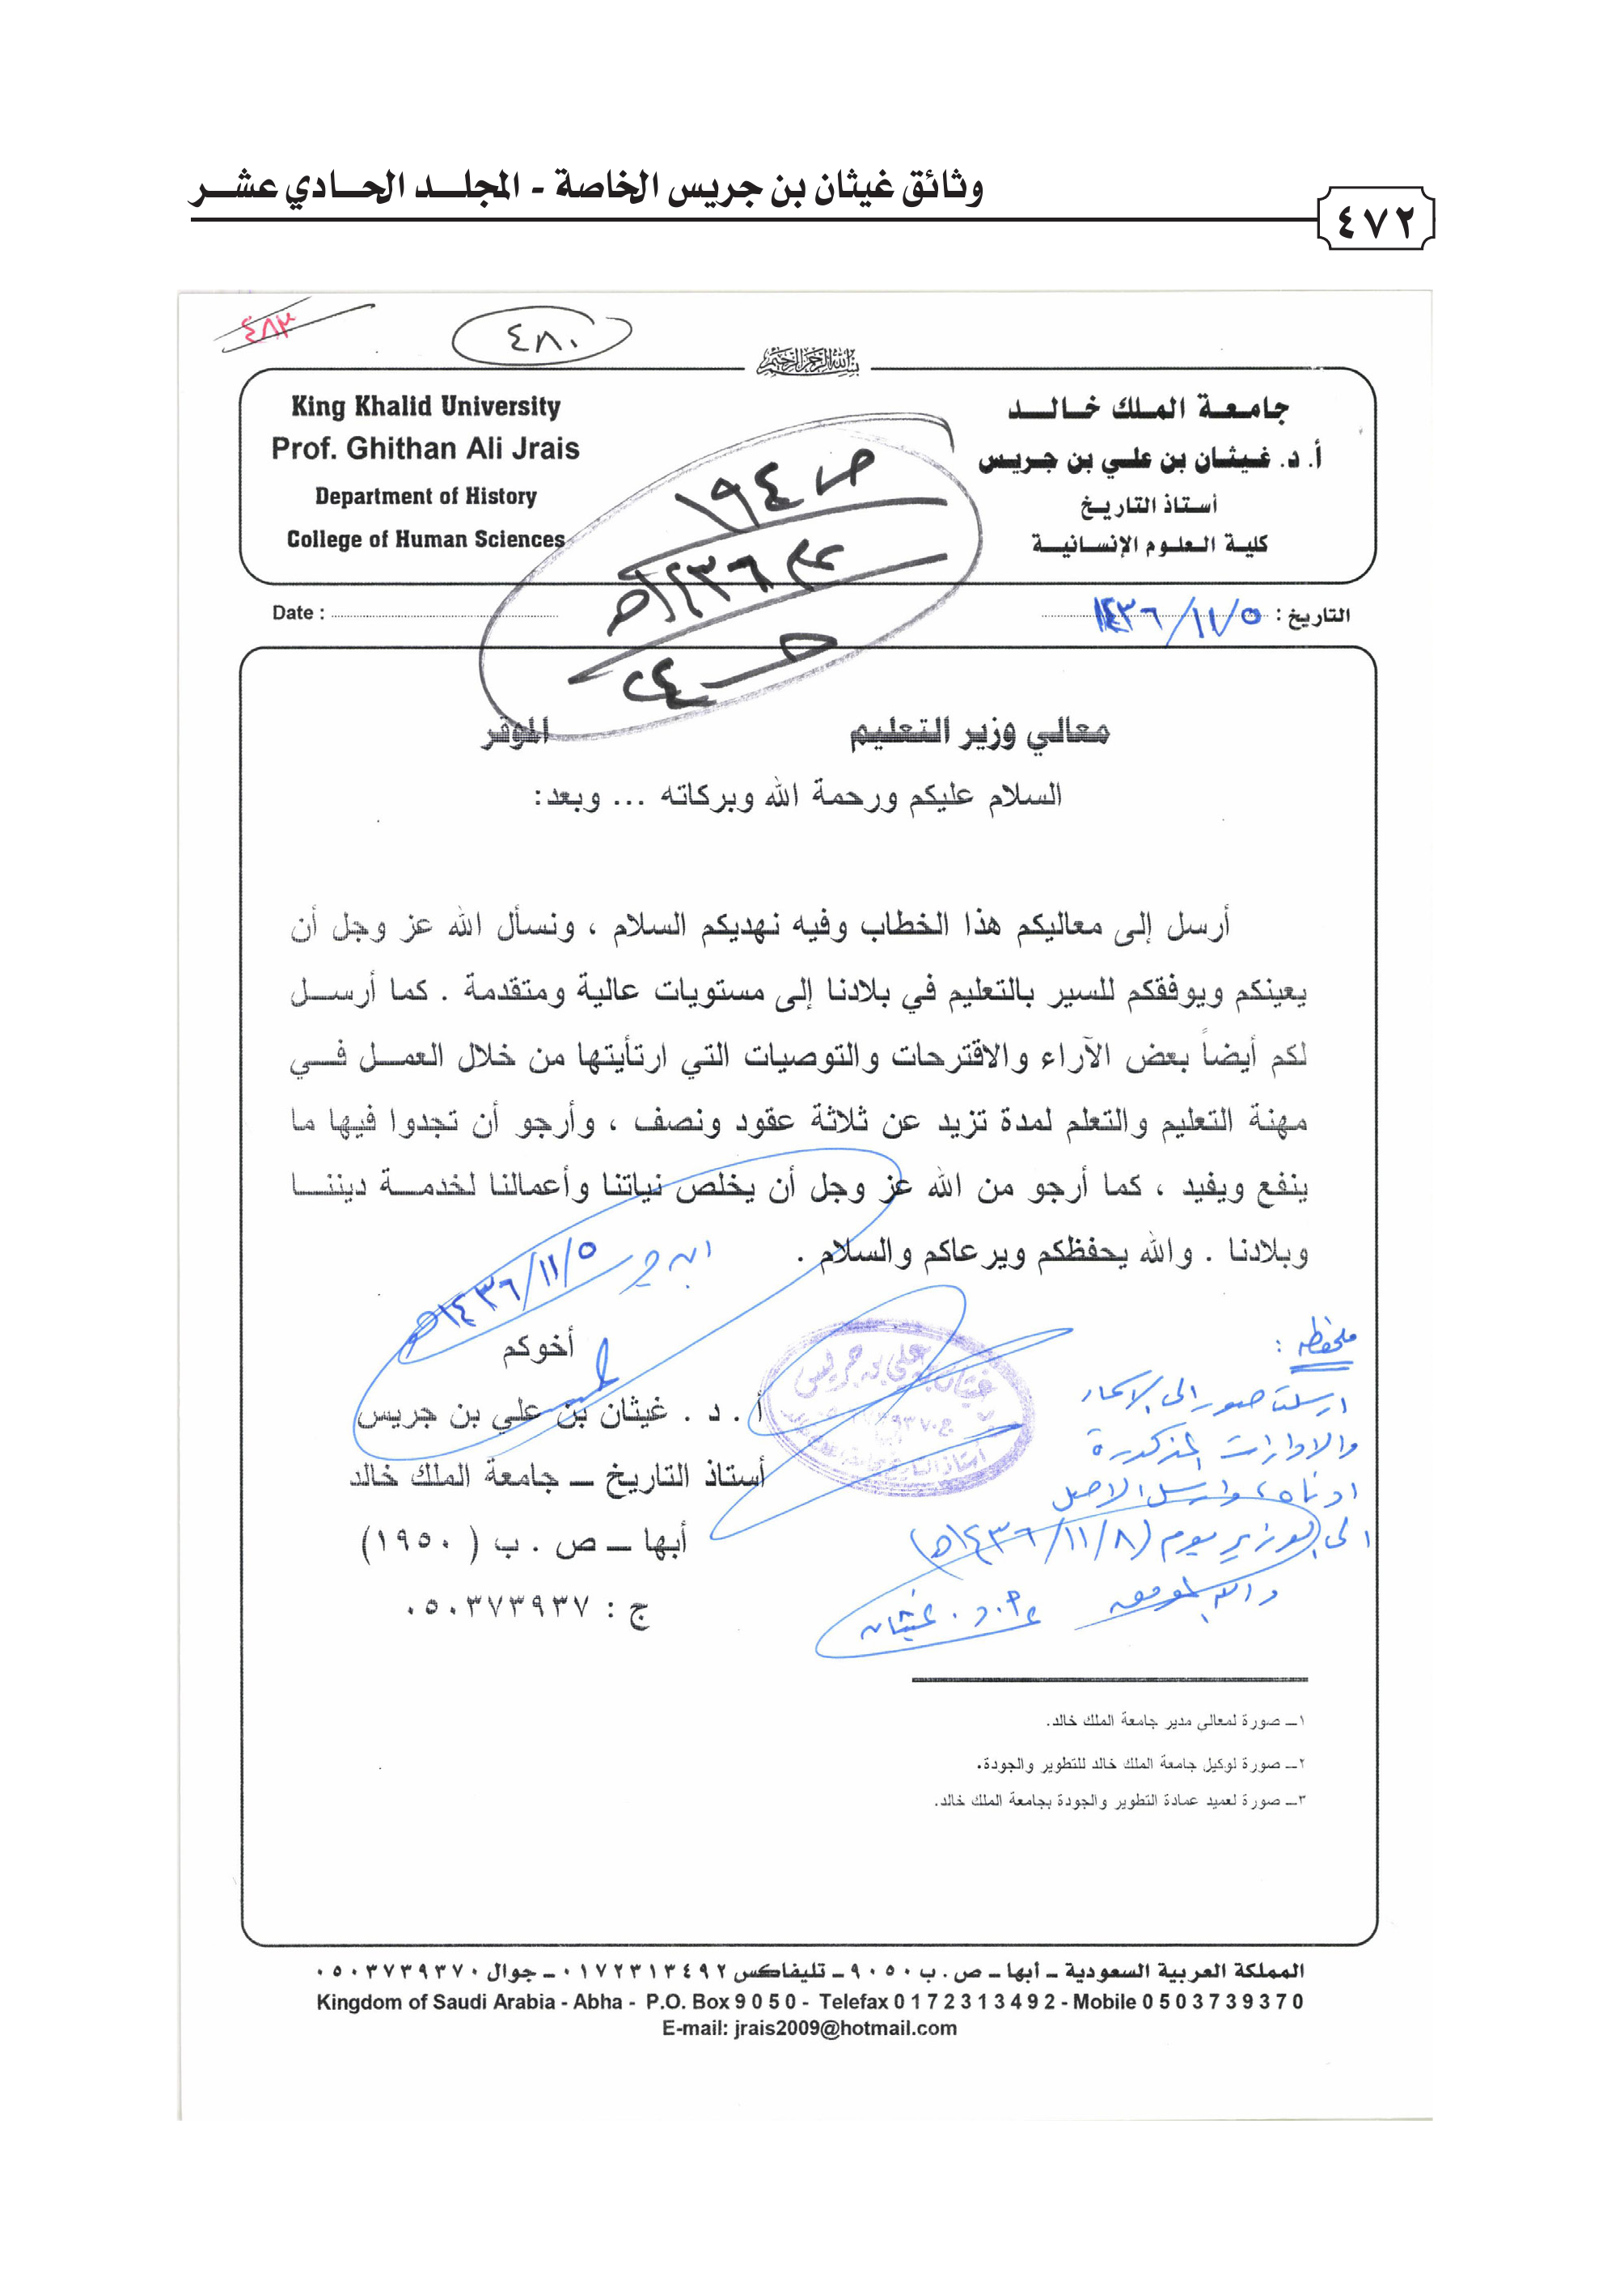 وثائق غيثان بن جريس الخاصة - المجلد الحادي عشر
٤٧٢
٤٨٣
٤٨٠
بسم الله الرحمن الرحيم
جامعة الملك خالد
أ. د. غيثان بن علي بن جريس
أستاذ التاريخ
كلية العلوم الإنسانية
King Khalid University
Prof. Ghithan Ali Jrais
Department of History
College of Human Sciences
ص ١٩٤
عام ١٤٣٦هـ
التاريخ : ١٤٣٦/١١/٥
Date :
معالي وزير التعليم الموقر
السلام عليكم ورحمة الله وبركاته ... وبعد:
أرسل إلى معاليكم هذا الخطاب وفيه نهديكم السلام ، ونسأل الله عز وجل أن
يعينكم ويوفقكم للسير بالتعليم في بلادنا إلى مستويات عالية ومتقدمة . كما أرسل
لكم أيضاً بعض الآراء والاقترحات والتوصيات التي ارتأيتها من خلال العمل في
مهنة التعليم والتعلم لمدة تزيد عن ثلاثة عقود ونصف ، وأرجو أن تجدوا فيها ما
ينفع ويفيد ، كما أرجو من الله عز وجل أن يخلص نياتنا وأعمالنا لخدمة ديننا
وبلادنا . والله يحفظكم ويرعاكم والسلام .
١٤٣٦/١١/٥هـ
أخوكم
أ . د . غيثان بن علي بن جريس
أستاذ التاريخ ــ جامعة الملك خالد
أبها ــ ص . ب ( ١٩٥٠)
ج : ٠٥٠٣٧٣٩٣٧
ملحظه :
ارسلت صور الى الاسماء
والادارات المذكورة
ادناه ، وارسل الاصل
الى الوزير يوم (١٤٣٦/١١/٨هـ)
والله الموفق
أ.د. غيثان
غيثان بن علي بن جريس
١ــ صورة لمعالي مدير جامعة الملك خالد.
٢ــ صورة لوكيل جامعة الملك خالد للتطوير والجودة.
٣ــ صورة لعميد عمادة التطوير والجودة بجامعة الملك خالد.
المملكة العربية السعودية ــ أبها ــ ص . ب ٩٠٥٠ ــ تليفاكس ٠١٧٢٣١٣٤٩٢ ــ جوال ٠٥٠٣٧٣٩٣٧٠
Kingdom of Saudi Arabia - Abha - P.O. Box 9 0 5 0 - Telefax 0 1 7 2 3 1 3 4 9 2 - Mobile 0 5 0 3 7 3 9 3 7 0
E-mail: jrais2009@hotmail.com